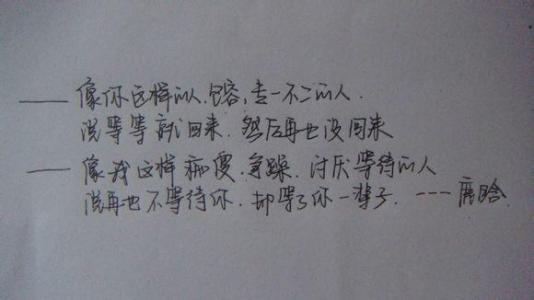 —— 像你这样的人.包容,专一不二的人.
说等等就回来.然后再也没回来
—— 像我这样犹豫.急躁.讨厌等待的人
说再也不等待你.却等了你一辈子. ---鹿晗.